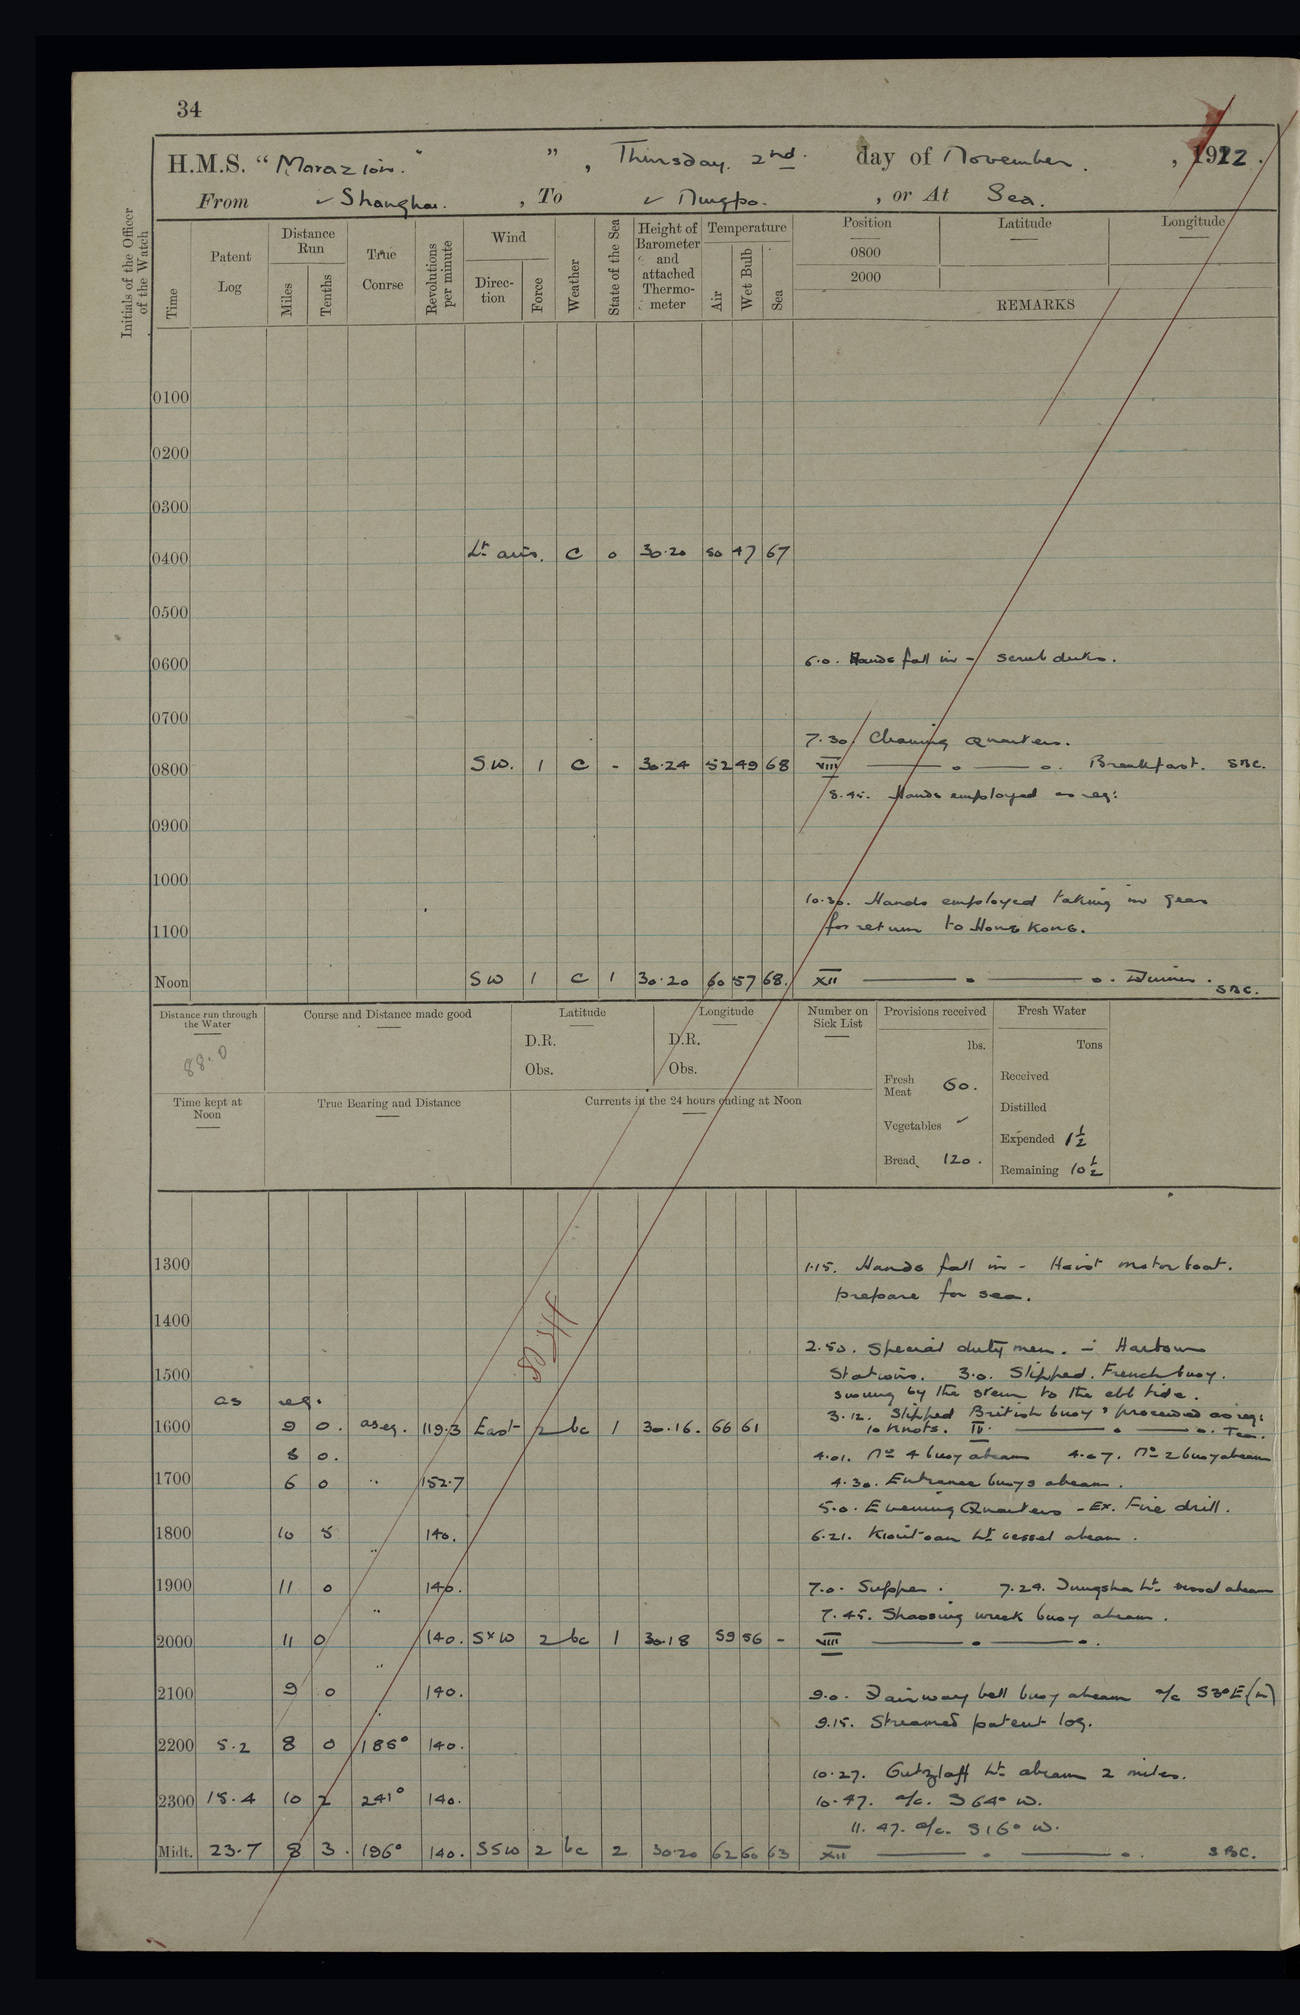 34
H.M.S. "Marazion." ", Thursday. 2nd. day of November, 1922.
From Shanghai. , To Ningpo. , or At Sea.
Initials of the Officer of the Watch
Time
Patent Log
Distance Run
Miles
Tenths
True Course
Revolutions per minute
Wind
Direction
Force
Weather
State of the Sea
Height of Barometer and attached Thermometer
Temperature
Air
Wet Bulb
Sea
Position
Latitude
Longitude
0800
2000
REMARKS
0100
0200
0300
0400 Lt airs. c 0 30.20 50 47 67
0500
0600 6.0. Hands fall in - scrub decks.
0700
7.30. Cleaning Quarters.
0800 S.W. 1 c - 30.24 52 49 68 VIII ——— o ——— o. Breakfast. SBC.
8.45. Hands employed as req:
0900
1000
10.30. Hands employed taking in gear
1100 for return to Hong Kong.
Noon SW 1 c 1 30.20 60 57 68. XII ——— o ——— o. Dinner.
SBC.
Distance run through the Water
88.0
Course and Distance made good
Latitude
D.R.
Obs.
Longitude
D.R.
Obs.
Number on Sick List
Provisions received
lbs.
Fresh Meat 60.
Vegetables -
Bread 120.
Fresh Water
Tons
Received
Distilled
Expended 1½
Remaining 10½
Time kept at Noon
True Bearing and Distance
Currents in the 24 hours ending at Noon
1300 1.15. Hands fall in - Hoist motor boat.
prepare for sea.
1400
2.50. Special duty men. - Harbour
1500 Stations. 3.0. Slipped. French buoy.
swung by the stern to the ebb tide.
as req.
3.12. Slipped British buoy & proceeded as req:
1600 9 0. as req. 119.3 East 2 bc 1 30.16. 66 61 10 Knots. IV. ——— o ——— o. Tea.
8 0. 4.01. No 4 buoy abeam 4.07. No 2 buoy abeam
1700 6 0 " 152.7 4.30. Entrance buoys abeam.
5.0. Evening Quarters - Ex. Fire drill.
1800 10 5 " 140. 6.21. Kiutoan Lt vessel abeam.
1900 11 0 " 140. 7.0. Supper. 7.24. Tungsha Lt. vessel abeam
7.45. Shaosing wreck buoy abeam.
2000 11 0 " 140. SxW 2 bc 1 30.18 59 56 - VIII ——— o ——— o.
2100 9 0 " 140. 9.0. Fairway bell buoy abeam a/c S3°E (m)
9.15. Streamed patent log.
2200 5.2 8 0 185° 140.
10.27. Gutzlaff Lt. abeam 2 miles.
2300 15.4 10 2 241° 140. 10.47. a/c. S 64° W.
11.47. a/c. S 16° W.
Midt. 23.7 8 3. 196° 140. SSW 2 bc 2 30.20 62 60 63 XII ——— o ——— o. SBC.